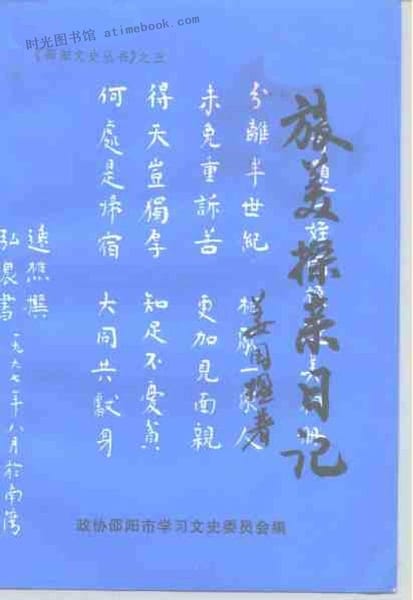 时光图书馆 atimebook.com
文史丛书》之五
旅美探亲日记
姜国 著
分離半世紀
一家人
未免重訴苦 更加見面親
得天豈獨厚 知足不憂貧
何處是歸宿 大同共獻身
撰
弘農書
一九九七年八月於南灣
政协邵阳市学习文史委员会编